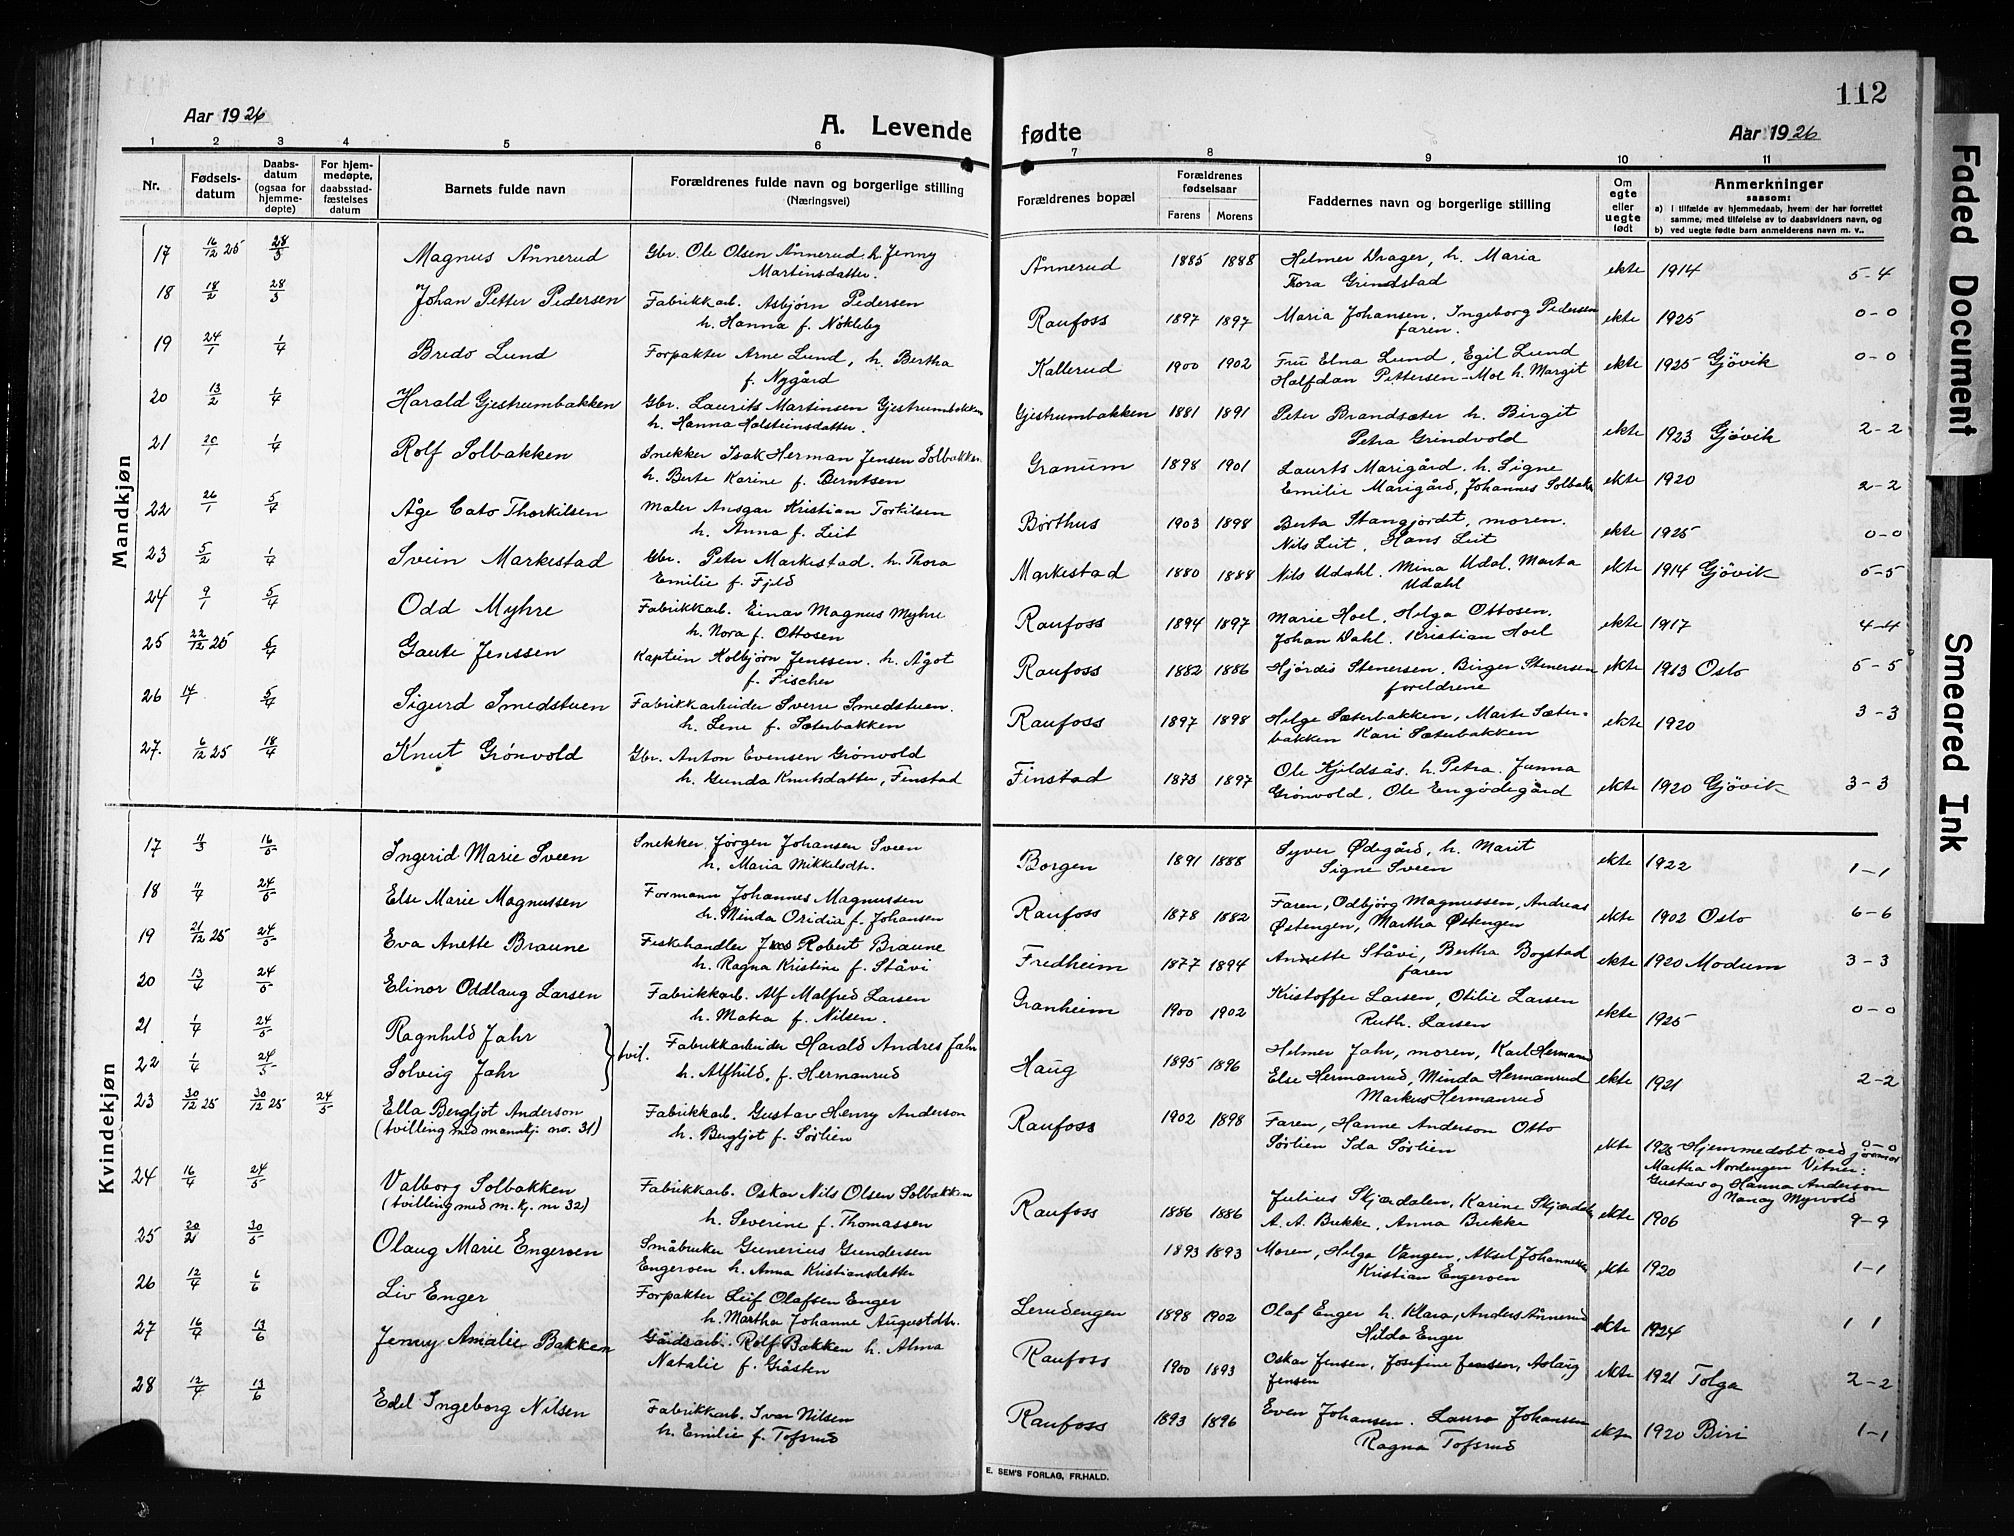 112
Aar 1926
A. Levende fødte
Aar 1926
1 2 3 4 5 6 7 8 9 10 11
Nr.
Fødselsdatum
Daabsdatum (ogsaa for hjemmedøpte)
For hjemmedøpte, daabsstadfæstelses datum
Barnets fulde navn
Forældrenes fulde navn og borgerlige stilling (Næringsvei)
Forældrenes bopæl
Forældrenes fødselsaar
Farens Morens
Faddernes navn og borgerlige stilling
Om egte eller uegte født
Anmerkninger saasom:
a) i tilfælde av hjemmedaab, hvem der har forrettet samme, med tilføielse av to daabsvidners navn, og
b) ved uegte fødte barn anmelderens navn m. v..
Mandkjøn
17 16/12 25 28/3 Magnus Ånnerud Gbr. Ole Olsen Ånnerud h. Jenny Ånnerud 1885 1888 Helmer Drager, h. Maria ekte 1914 5-4
Martinsdatter. Thora Grindstad
18 18/2 28/3 Johan Petter Pedersen Fabrikkarb. Asbjørn Pedersen Raufoss 1897 1897 Maria Johansen. Ingeborg Pedersen ekte 1925 0-0
h. Hanna f. Nøkleby faren.
19 24/1 1/4 Bredo Lund Forpakter Arne Lund, h. Bertha Kallerud 1900 1902 Fru Elna Lund, Egil Lund ekte 1925 Gjøvik 0-0
f. Nygård Halfdan Pettersen-Moe h. Margit
20 13/2 1/4 Harald Gjestrumbakken Gbr. Laurits Martinsen Gjestrumbakken Gjestrumbakken 1881 1891 Peter Brandsæter h. Birgit ekte 1923 Gjøvik 2-2
h. Hanna Holsteinsdatter. Petra Grindvold
21 20/1 1/4 Rolf Solbakken Snekker Isak Herman Jensen Solbakken Granum 1898 1901 Laurts Marigård. h. Signe ekte 1920 2-2
h. Berte Karine f. Berntsen Emilie Marigård, Johannes Solbakk
22 26/1 5/4 Åge Cato Thorkilsen Maler Ansgar Kristian Torkilsen Børthus 1903 1898 Berta Stangjordet, moren. ekte 1925 0-0
h. Anna f. Leit Nils Leit, Hans Leit
23 5/2 1/4 Svein Markestad Gbr. Peter Markestad. h. Thora Markestad 1880 1888 Nils Udahl. Mina Udal. Marta ekte 1914 Gjøvik 5-5
Emilie f. Fjeld Udahl
24 9/1 5/4 Odd Myhre Fabrikkarb. Einar Magnus Myhre Raufoss 1894 1897 Marie Hoel. Helga Ottosen. ekte 1917 4-4
h. Nora f. Ottosen Johan Dahl. Kristian Hoel
25 22/12 25 5/4 Gaute Jenssen Kaptein Kolbjørn Jenssen. h. Ågot Raufoss 1882 1886 Hjørdis Stenersen. Birger Stenersen ekte 1913 Oslo 5-5
f. Fischer foreldrene
26 14/ 5/4 Sigurd Smedstuen Fabrikkarbeider Sverre Smedstuen. Raufoss 1897 1898 Helge Sæterbakken, Marte Sæter- ekte 1920 3-3
h. Lene f. Sæterbakken bakken Kari Sæterbakken
27. 6/12 25 18/4 Knut Grønvold Gbr. Anton Evensen Grønvold Finstad 1873 1897 Ole Kjildsås. h. Petra. Gunna ekte 1920 Gjøvik 3-3
h. Gunda Knutsdatter, Finstad Grønvold. Ole Engødegård
Kvindekjøn
17 11/3 16/5 Ingerid Marie Sveen Snekker Jørgen Johansen Sveen Borgen 1891 1888 Syver Ødegård, h. Marit ekte 1922 1-1
h. Maria Mikkelsdtr. Signe Sveen
18 11/4 24/5 Else Marie Magnussen Formann Johannes Magnussen Raufoss 1878 1882 Faren, Odbjørg Magnussen, Andreas ekte 1902 Oslo 6-6
h. Minda Oridia f. Johansen Østengen, Martha Østengen
19 21/12 25 24/5 Eva Anette Braune Fiskehandler Jens Robert Braune Fredheim 1877 1894 Andrette Ståvi, Bertha Bogstad ekte 1920 Modum 3-3
h. Ragna Kristine f. Ståvi faren
20 13/4 24/5 Elinor Oddlaug Larsen Fabrikkarb. Alf Malfred Larsen Granheim 1900 1902 Kristoffer Larsen, Otilie Larsen ekte 1925 0-0
h. Matea f. Nilsen. Ruth. Larsen
21 1/4 24/5 Ragnhild Jahr tvil. Fabrikkarbeider Harald Andres Jahr Haug 1895 1896 Helmer Jahr, moren, Karl Hermanrud ekte 1921 2-2
22 1/4 24/5 Solveig Jahr h. Alfhild, f. Hermanrud Else Hermanrud, Minda Hermanrud
Markus Hermanrud
23 30/12 25 30/12 25 24/5 Ella Bergljot Anderson Fabrikkarb. Gustav Henry Anderson Raufoss 1902 1898 Faren, Hanne Anderson Otto ekte 1925 Hjemmedøbt ved jormor 0-0
(tvilling med mannkj. no. 31) h. Bergljot f. Sørlien Sørlien Ida Sørlien Martha Nordengen Vitner:
Gustav og Hanna Anderson
Nancy Myrvold
24 16/4 24/5 Valborg Solbakken Fabrikkarb. Oskar Nils Olsen Solbakken Raufoss 1886 1886 Julius Skjærdalen, Karine Skjærdal ekte 1906 9-9
(tvilling med m. kj. nr 32) h. Severine f. Thomassen A. A. Bukke, Anna Bukke
25 20/2 30/5 Olaug Marie Engeroen Småbruker Gunerius Gundersen 1893 1893 Moren, Helga Vangen, Aksel Johannessen ekte 1920 1-1
Engeroen h. Anna Kristiansdatter Kristian Engeroen
26 12/4 6/6 Liv Enger Forpakter Leif Olafsen Enger Lerudengen 1898 1902 Olaf Enger h. Klara, Anders Ånnerud ekte 1924 1 1
h. Martha Johanne Augustdtr. Hilda Enger
27 16/4 13/6 Jenny Amalie Bakken Gårdsarb. Rolf Bakken h. Alma Raufoss 1900 1893 Oskar Jensen, Josefine Jensen, Aslaug ekte 1921 Tolga 2-2
Natalie f. Gråsten Jensen
28 12/4 13/6 Edel Ingeborg Nilsen Fabrikkarb. Ivar Nilsen Raufoss 1893 1896 Even Johansen. Laura Johansen ekte 1920 Biri 1-1
h. Emilie f. Tofsrud Ragna Tofsrud
E. SEM'S FORLAG, FR.HALD.
Faded Document
Smeared Ink